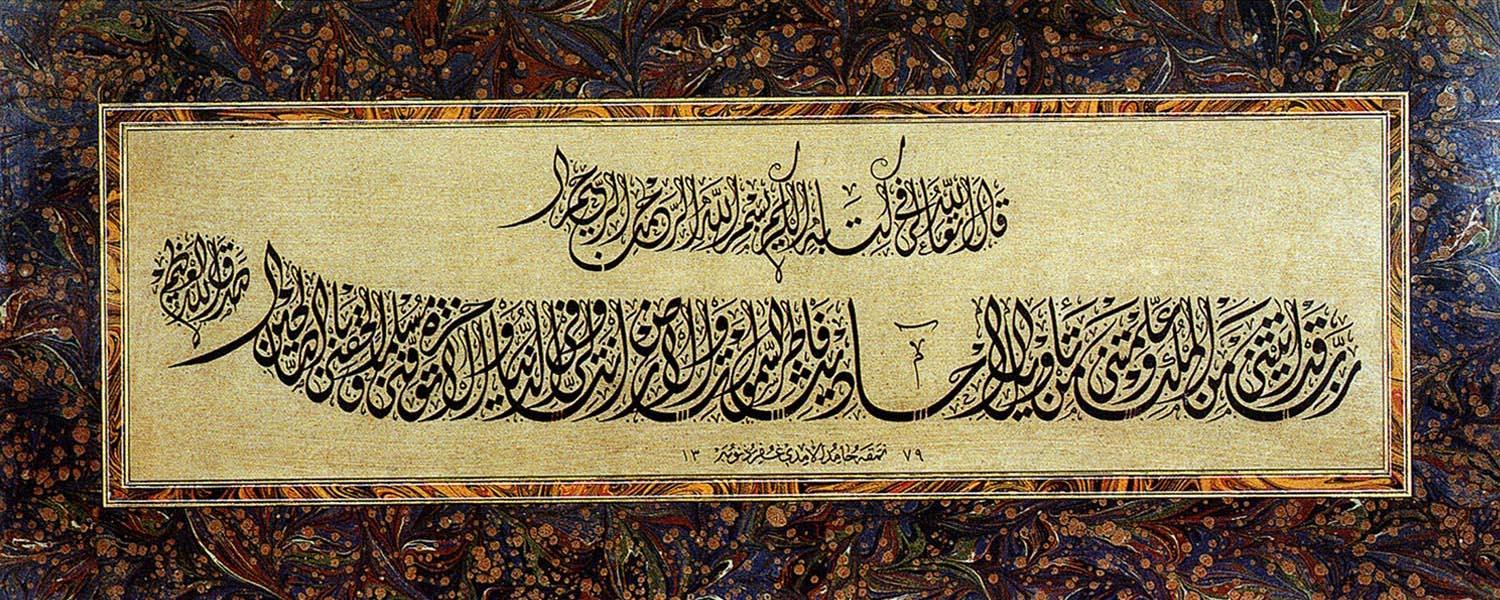 قال الله تعالى في كتابه الكريم بسم الله الرحمن الرحيم
رب قد آتيتني من الملك وعلمتني من تأويل الأحاديث فاطر السموات والأرض أنت وليي في الدنيا والآخرة توفني مسلما وألحقني بالصالحين
صدق الله العظيم
٧٩ نمقه حامد الآمدي غفر ذنوبه ١٣